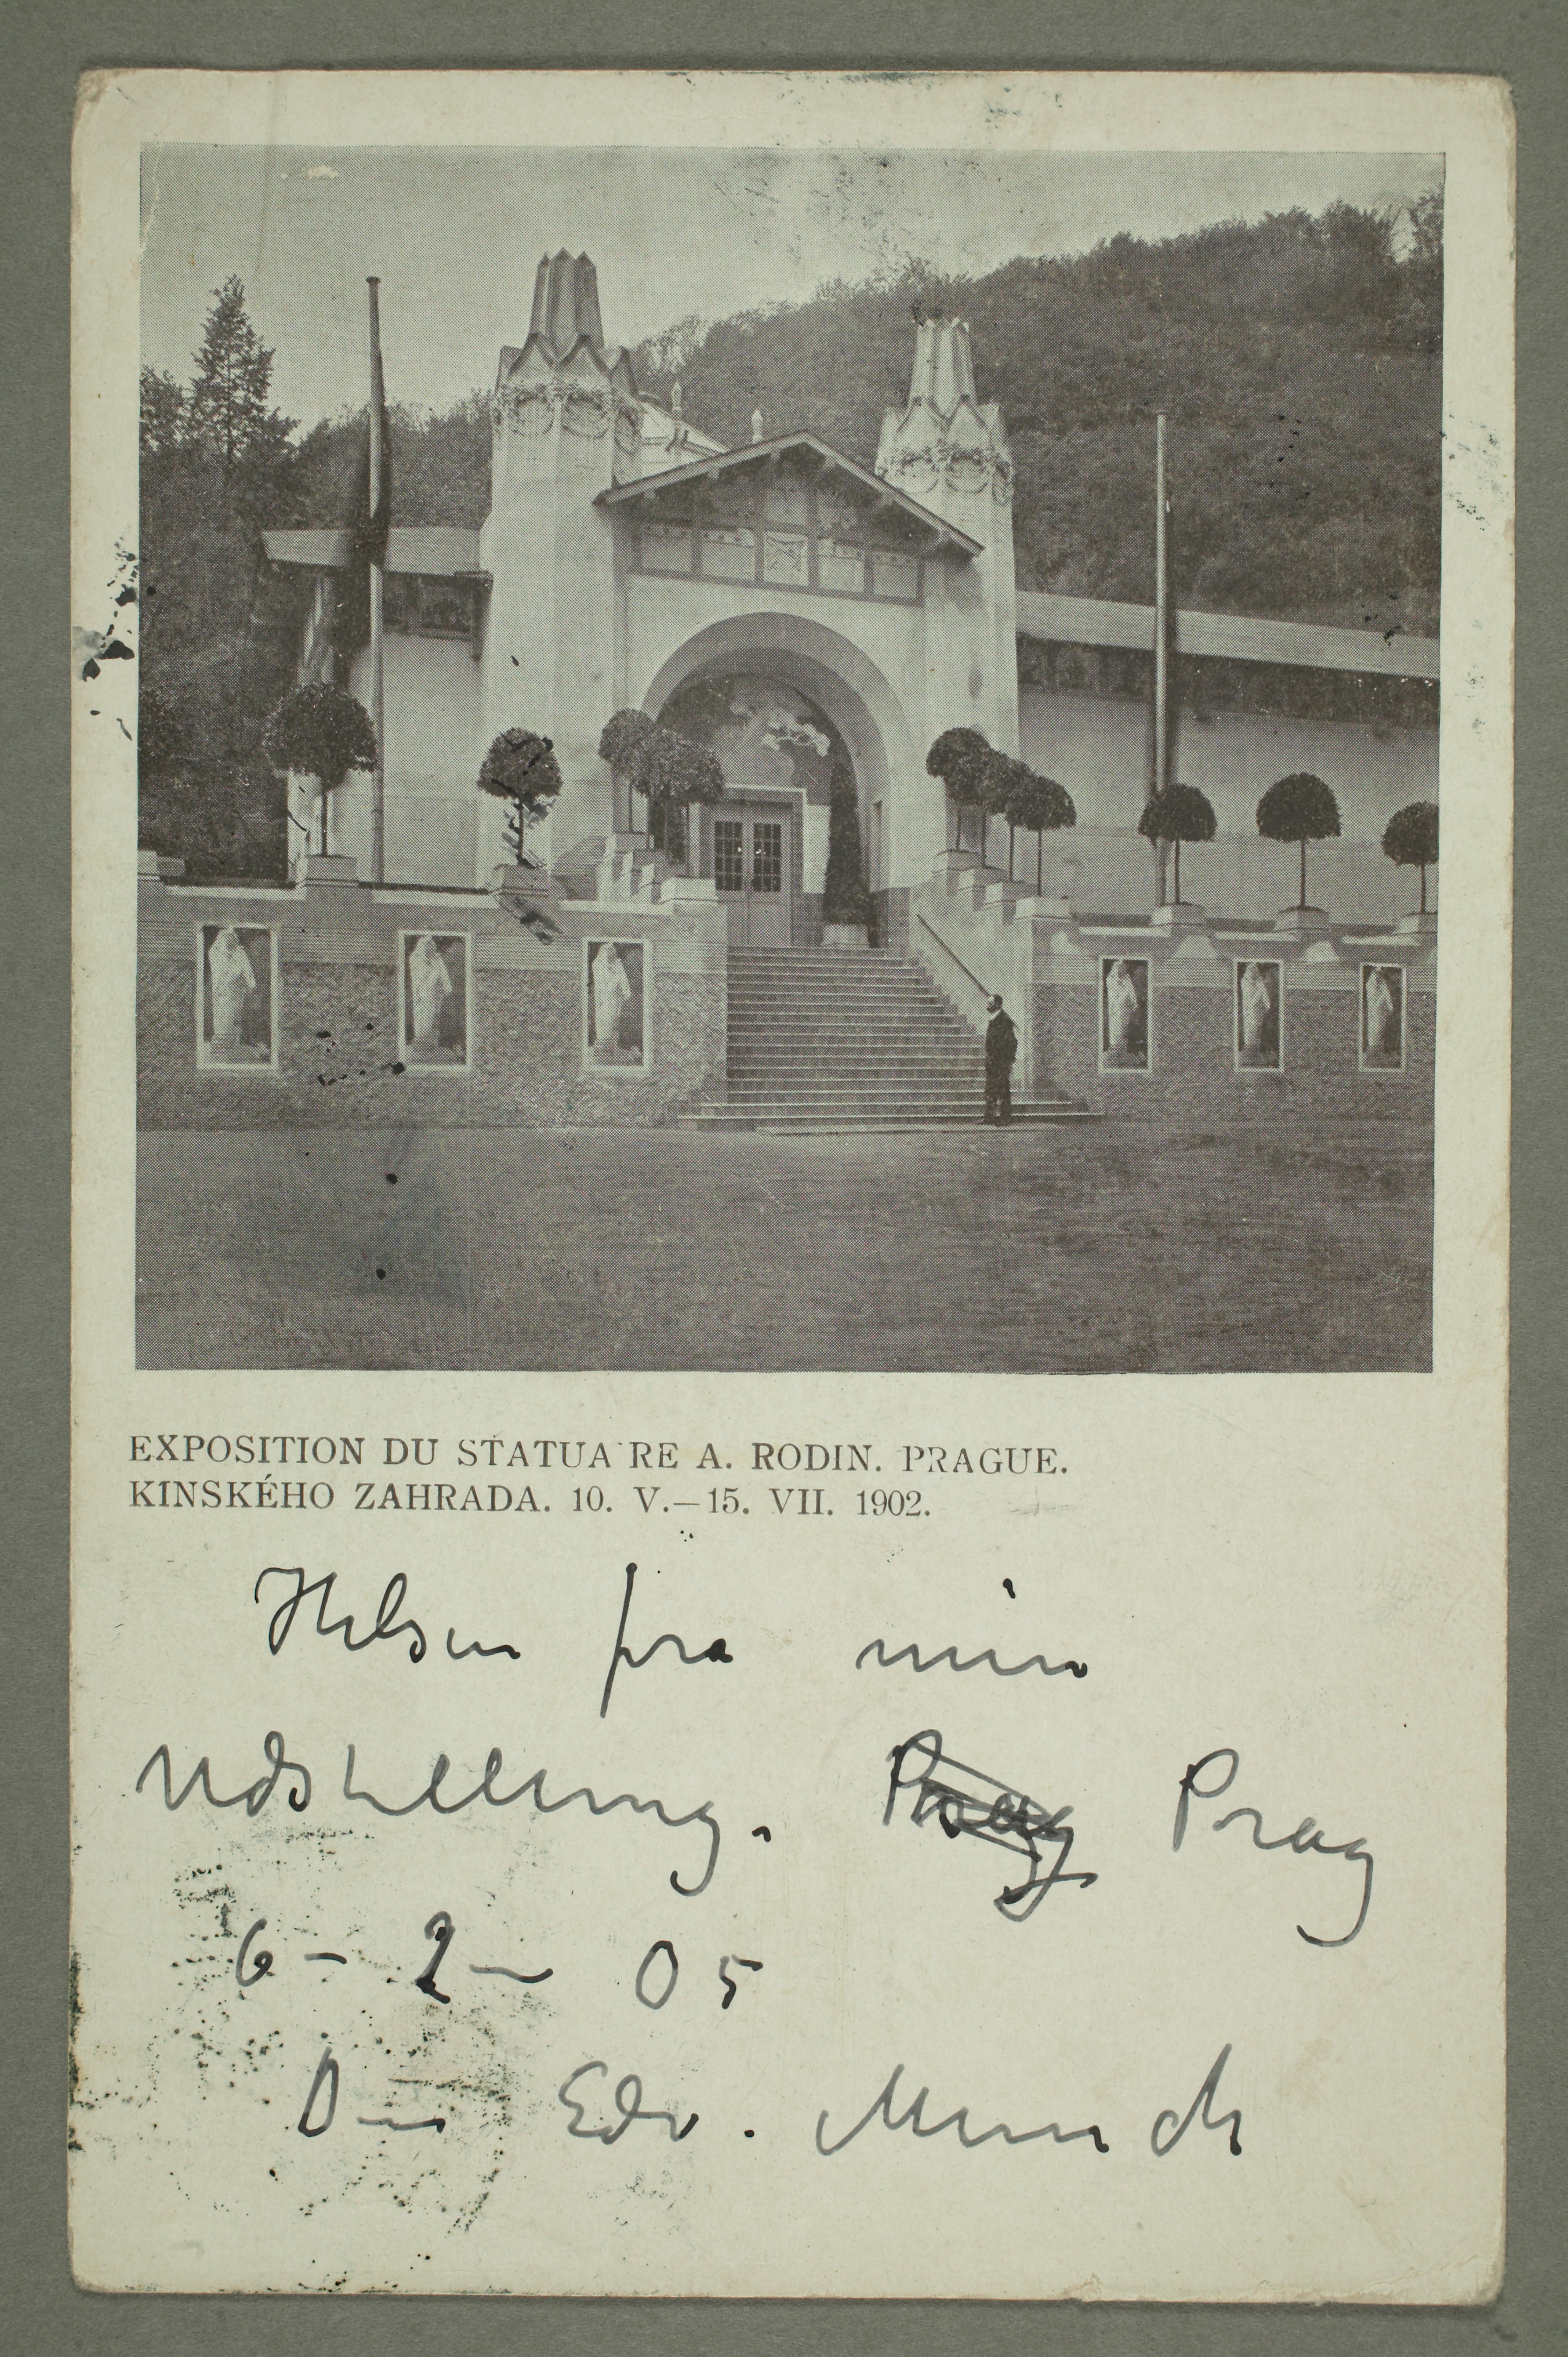 EXPOSITION DU STATUAIRE A. RODIN. PRAGUE.
KINSKÉHO ZAHRADA. 10. V.—15. VII. 1902.
Hilsen fra min
Udstilling. Prag Prag
6 – 2 – 05
Din Edv. Munch